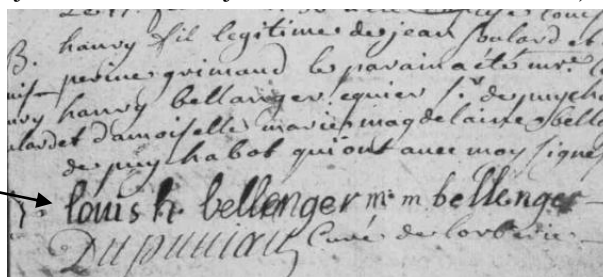 B. hanry fil legitime de jean soulard et
perine grimaud le parain a été mr.
hanry bellanger equier sr. de puycha
et damoiselle marie magdelaine bell
de puy habot qui ont avec moy signe
louis h. bellenger m. m bellenger
Dupuniau Curé de